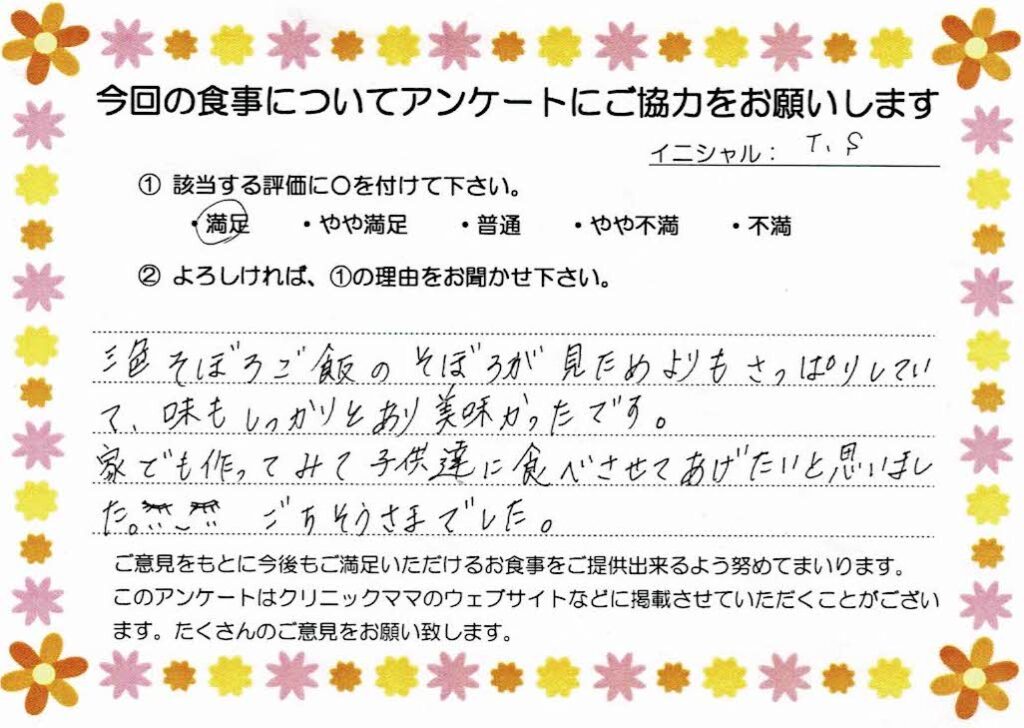 今回の食事についてアンケートにご協力をお願いします
イニシャル： T、S
① 該当する評価に〇を付けて下さい。
・満足 ・やや満足 ・普通 ・やや不満 ・不満
② よろしければ、①の理由をお聞かせ下さい。
三色そぼろご飯のそぼろが見ためよりもさっぱりしてい
て、味もしっかりとあり美味かったです。
家でも作ってみて子供達に食べさせてあげたいと思いまし
た。 ごちそうさまでした。
ご意見をもとに今後もご満足いただけるお食事をご提供出来るよう努めてまいります。
このアンケートはクリニックママのウェブサイトなどに掲載させていただくことがござい
ます。たくさんのご意見をお願い致します。